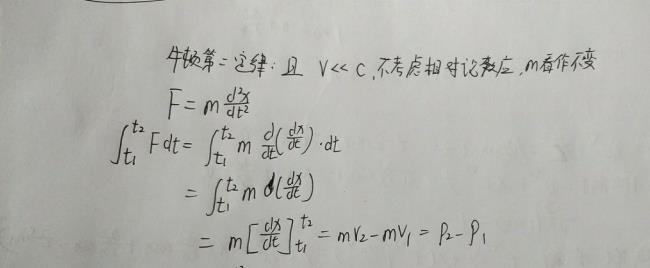 牛顿第二定律：且 V<<C，不考虑相对论效应，m看作不变
F = m d²x/dt²
∫_{t₁}^{t₂} F dt = ∫_{t₁}^{t₂} m d/dt(dx/dt)·dt
= ∫_{t₁}^{t₂} m d(dx/dt)
= m[dx/dt]_{t₁}^{t₂} = mv₂ - mv₁ = P₂ - P₁